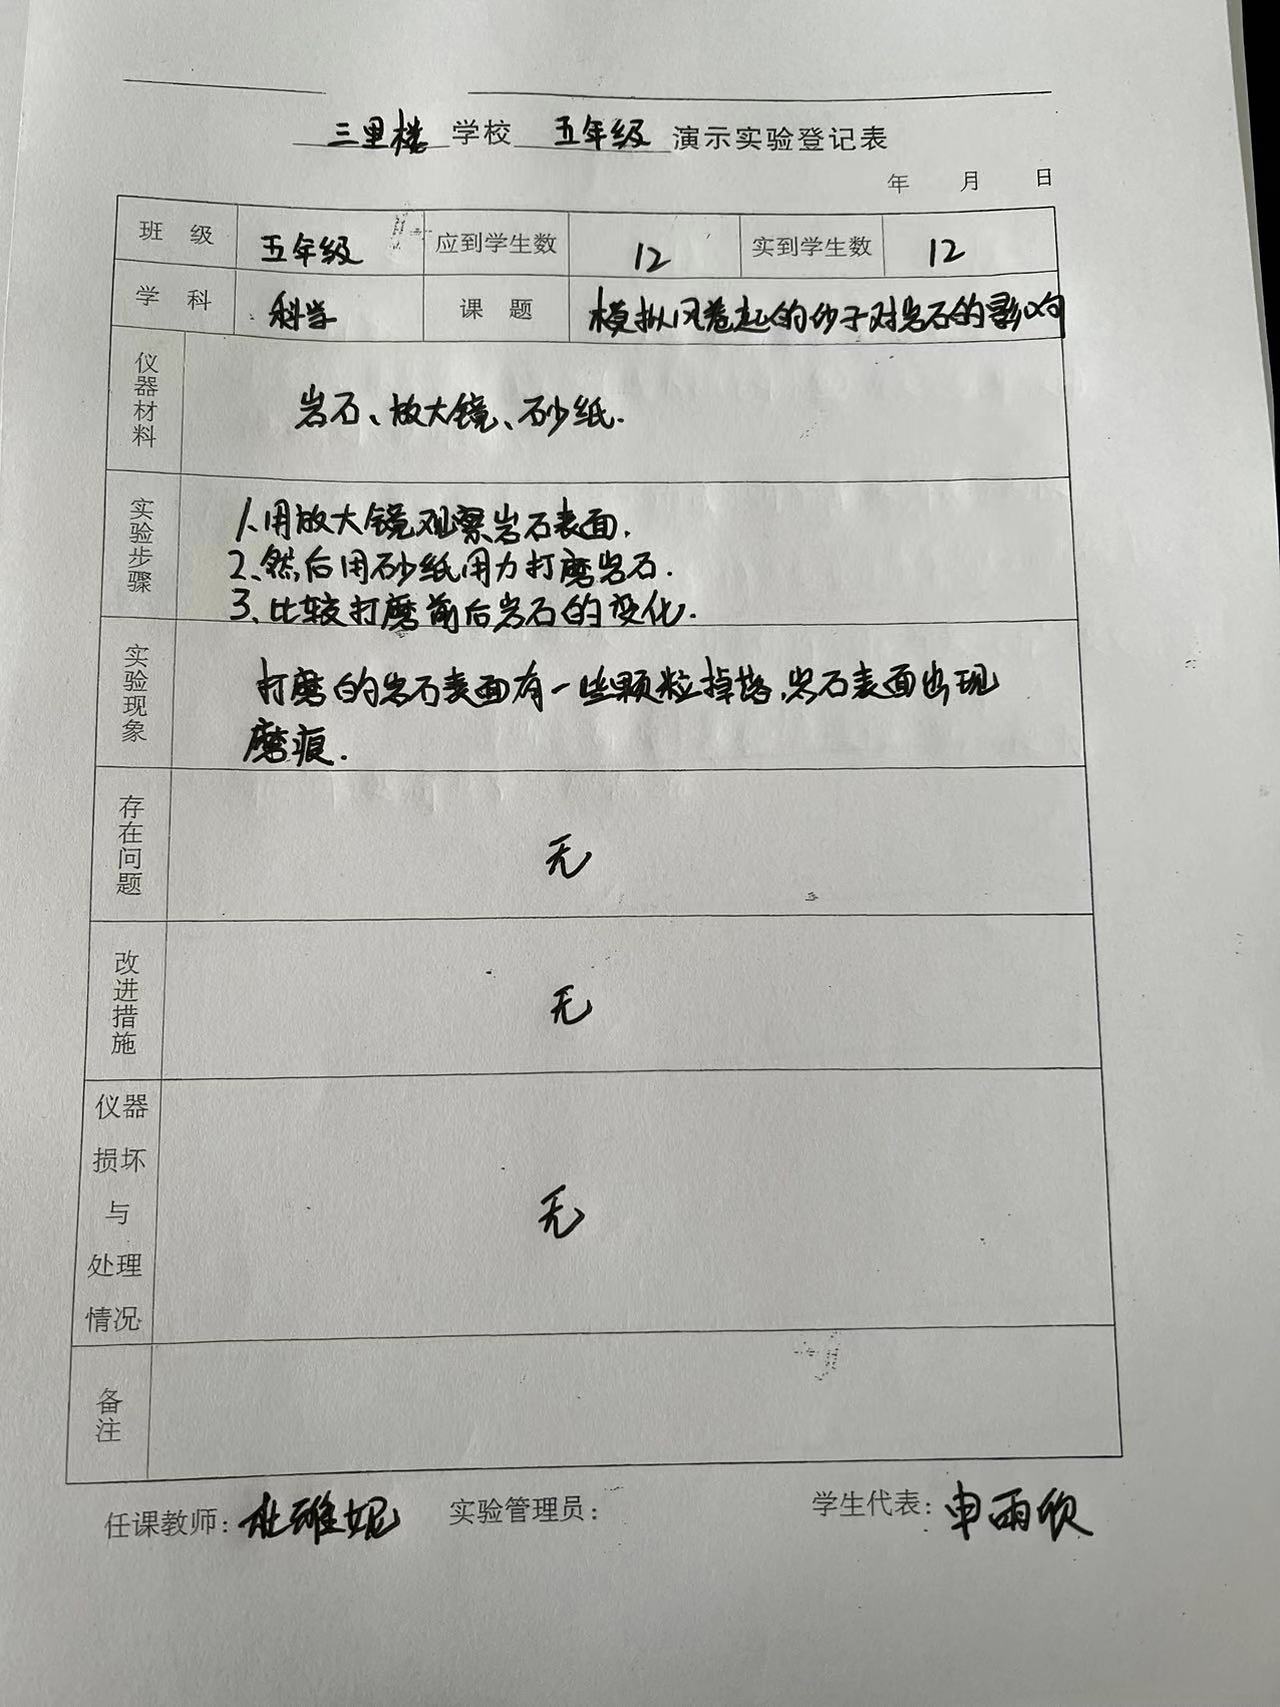 三里楼 学校 五年级 演示实验登记表
年 月 日
班 级 五年级 应到学生数 12 实到学生数 12
学 科 科学 课 题 模拟风卷起的砂子对岩石的影响
仪器材料 岩石、放大镜、砂纸.
实验步骤 1.用放大镜观察岩石表面.
2、然后用砂纸用力打磨岩石.
3、比较打磨前后岩石的变化.
实验现象 打磨的岩石表面有一些颗粒掉落,岩石表面出现
磨痕.
存在问题 无
改进措施 无
仪器
损坏
与 无
处理
情况
备注
任课教师: 杜雅妮 实验管理员: 学生代表: 申雨欣